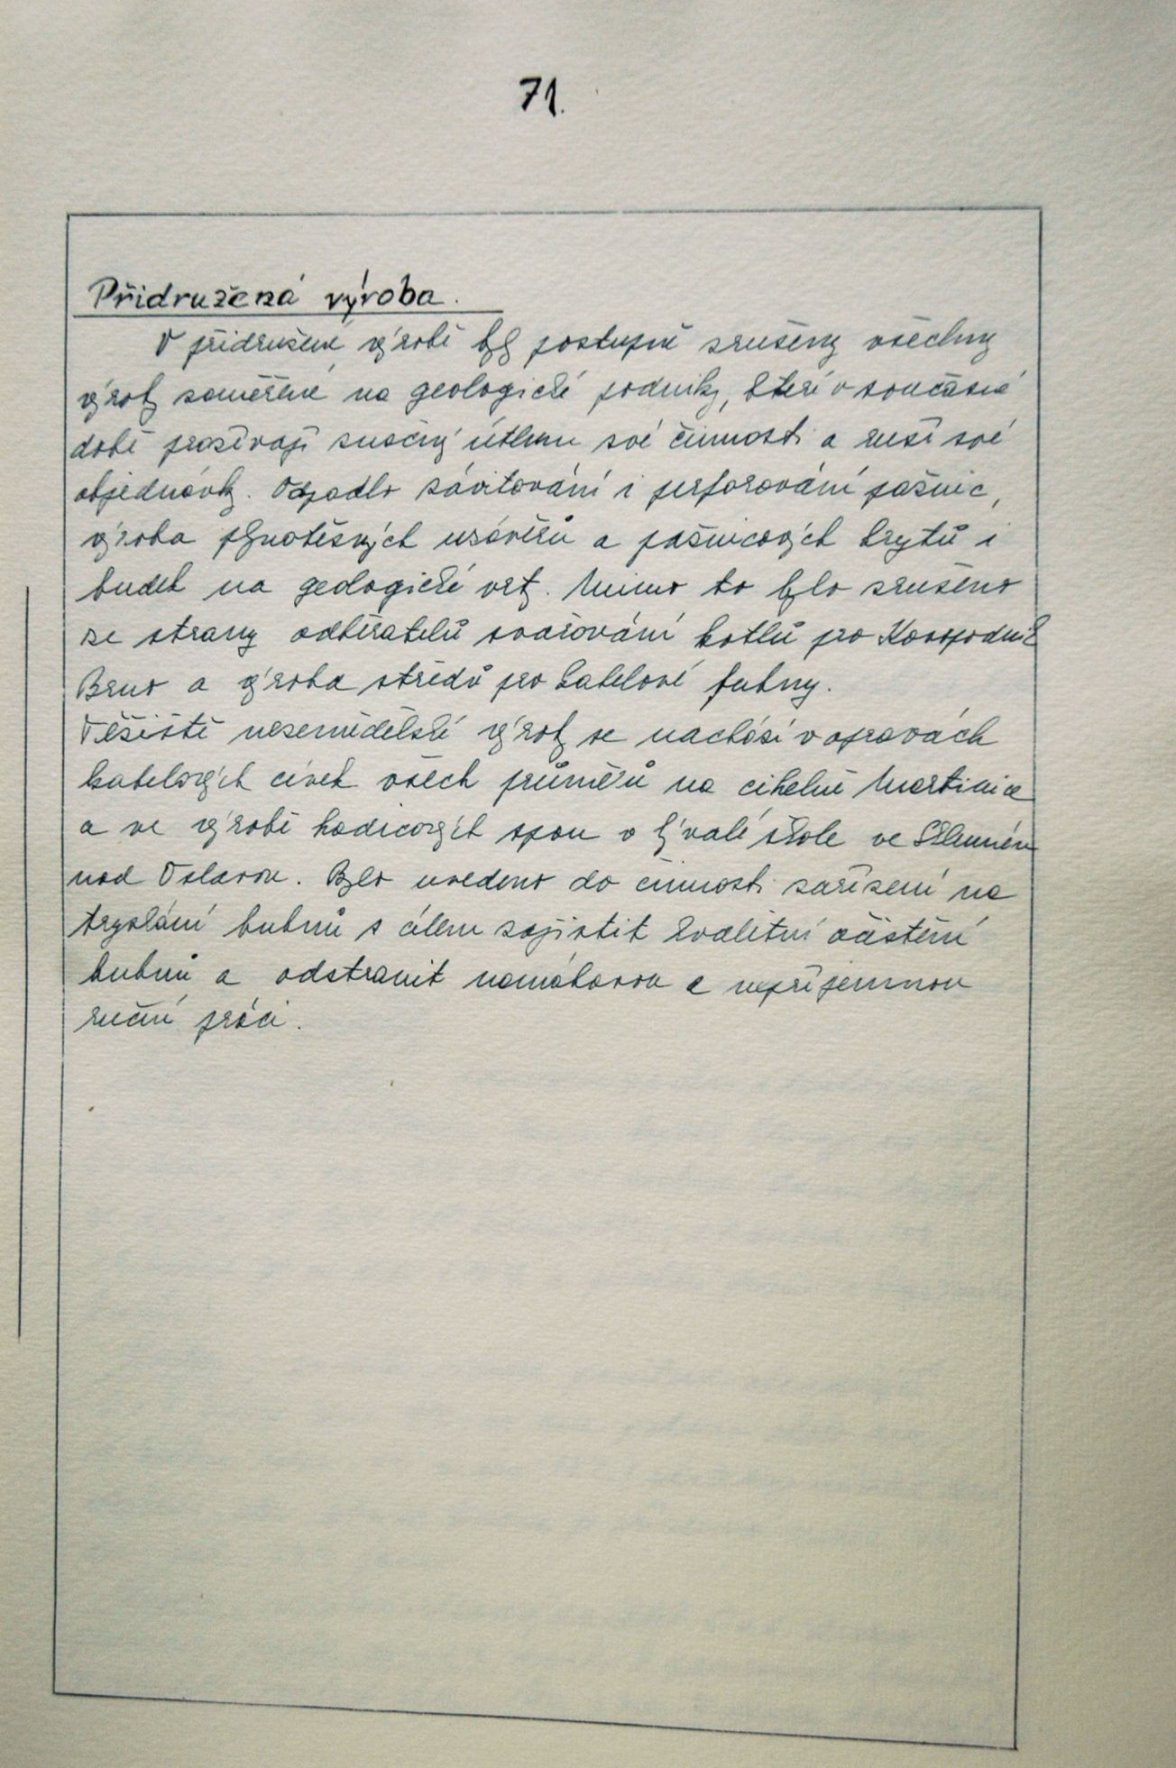 71.
Přidružená výroba.
V přidružené výrobě byly postupně zrušeny všechny
výroby zaměřené na geologické podniky, které v současné
době prožívají značný útlum své činnosti a ruší své
objednávky. Odpadlo závitování i perforování pažnic,
výroba plynotěsných uzávěrů a pažnicových krytů i
budek na geologické vrty. Mimo to bylo zrušeno
ze strany odběratelů svařování kotlů pro Kovopodnik
Brno a výroba středů pro kabelové bubny.
Těžiště nezemědělské výroby se nachází v opravách
kabelových cívek všech průměrů na cihelně Martinice
a ve výrobě hadicových spon v bývalé škole ve
nad Oslavou. Bylo uvedeno do činnosti zařízení na
tryskání bubnů s cílem zajistit kvalitní očištění
bubnů a odstranit namáhavou a nepříjemnou
ruční práci.